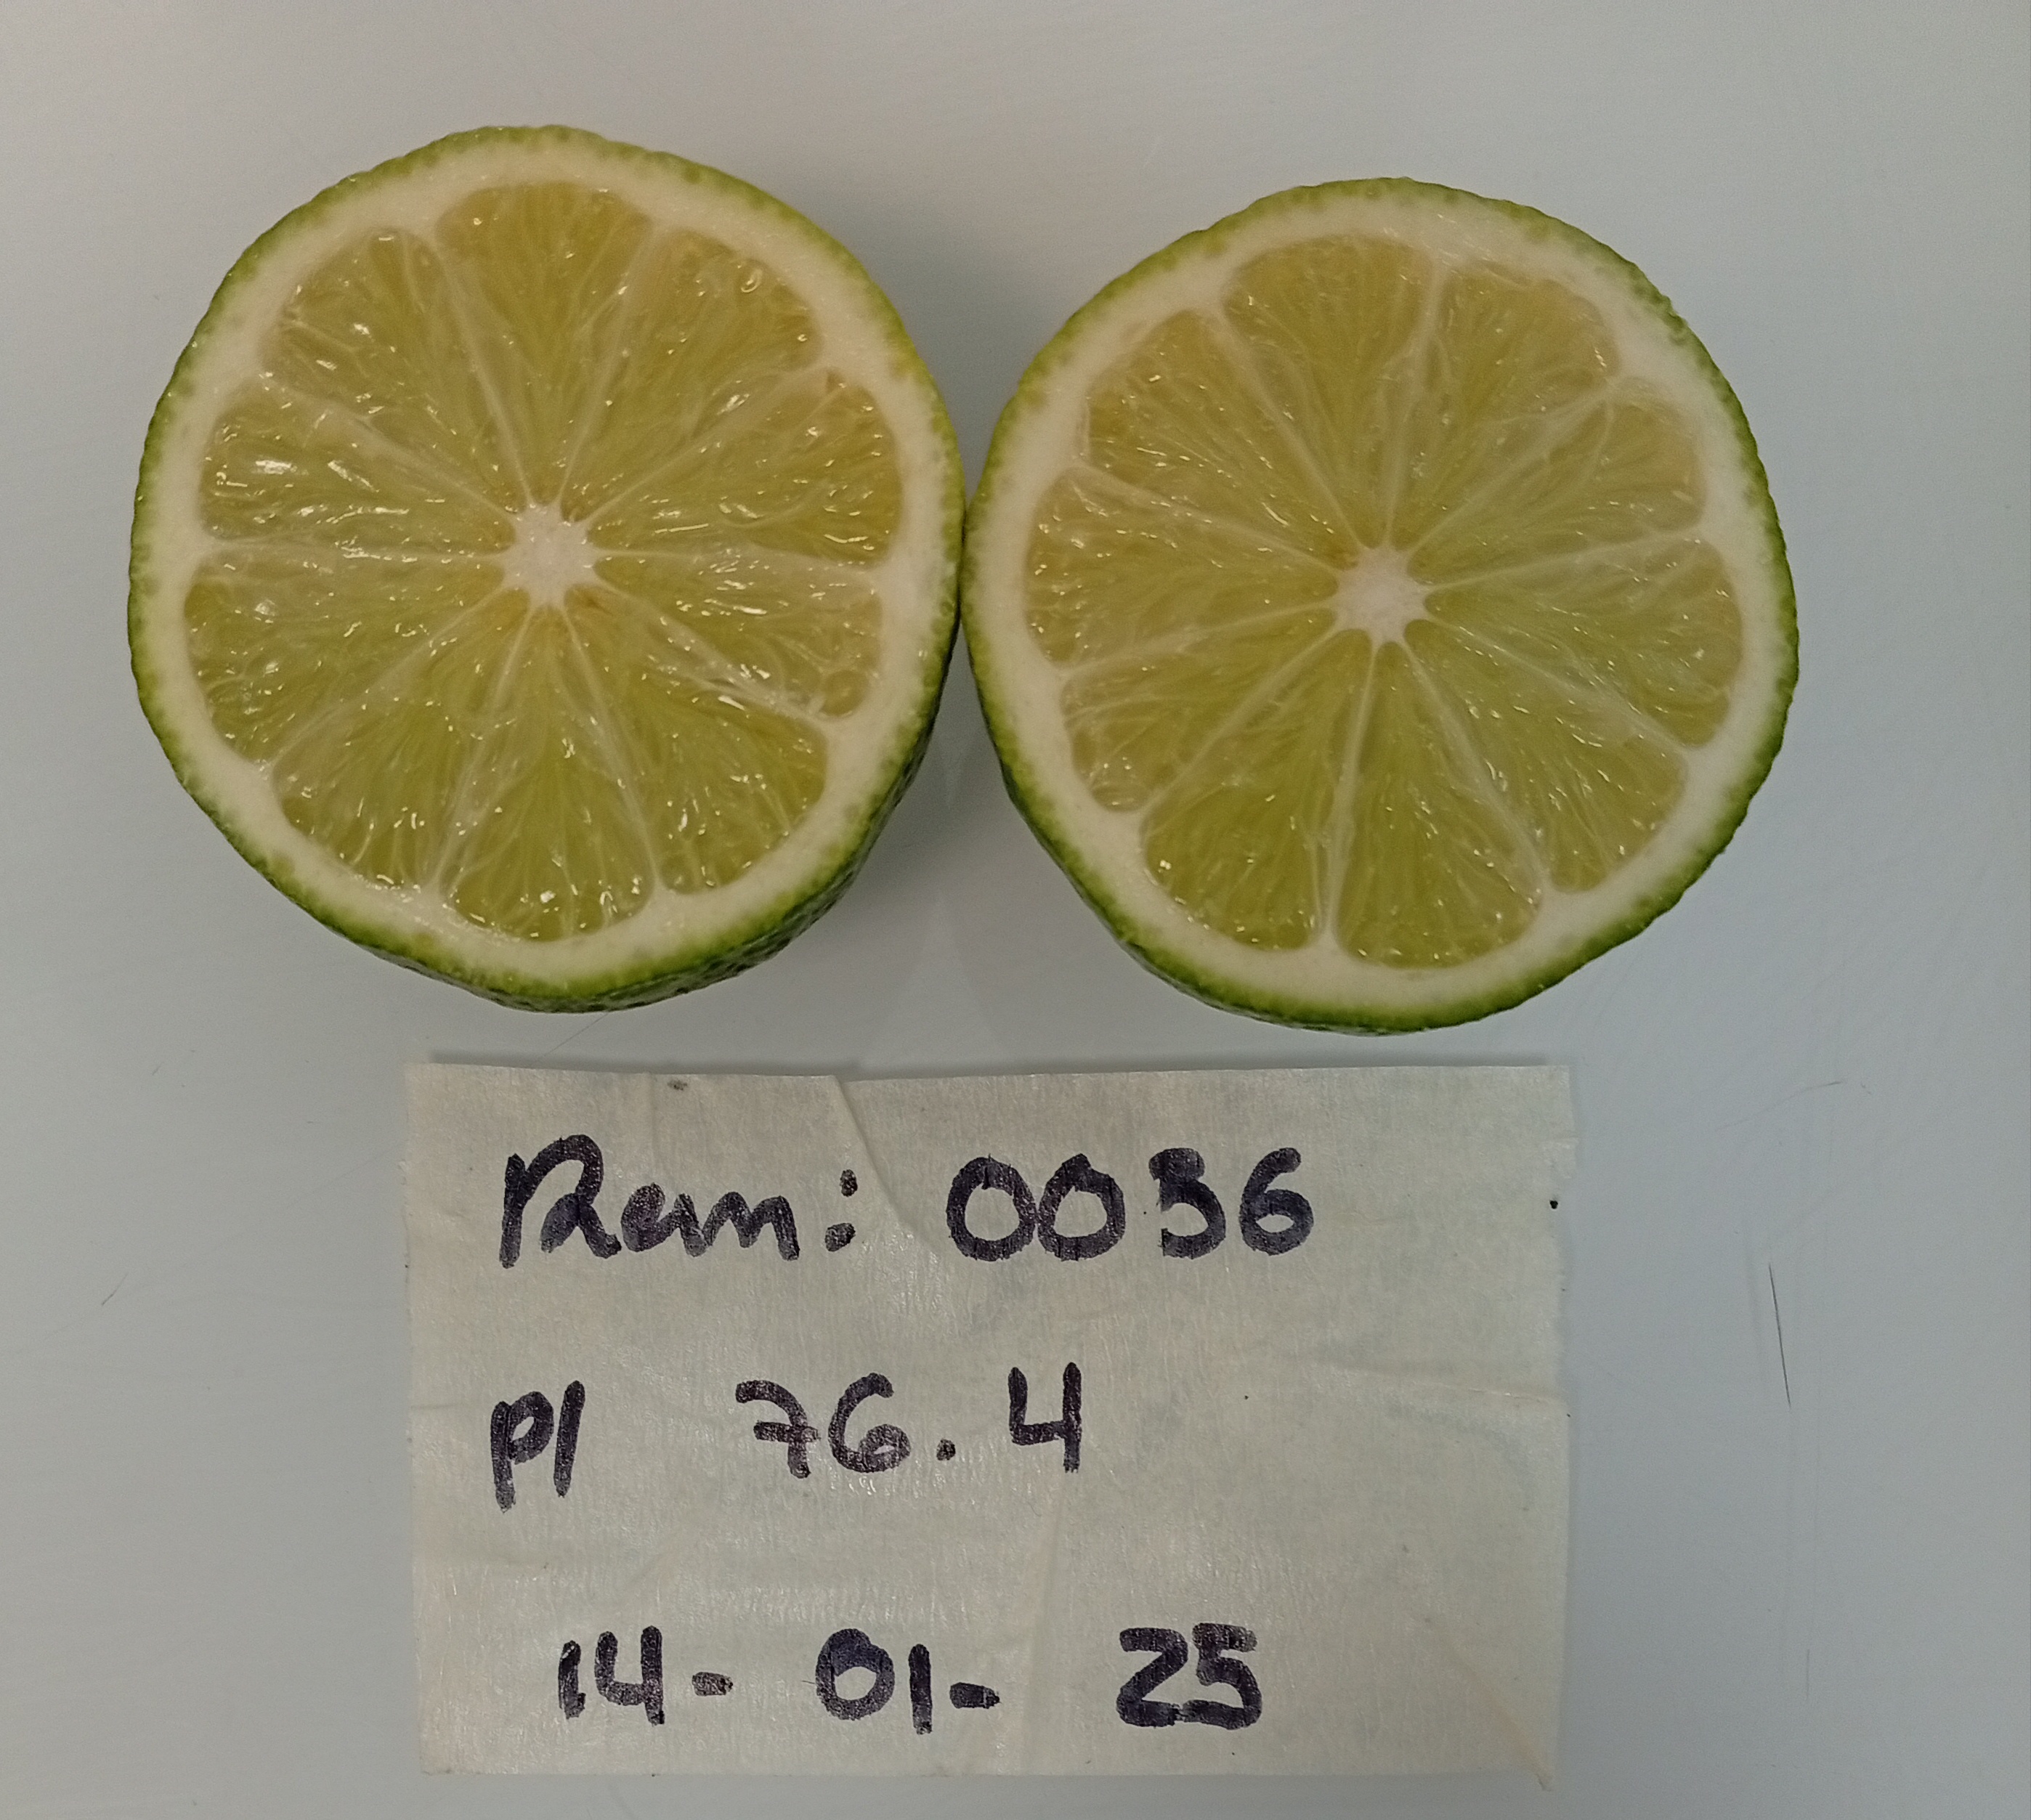 Rem: 0036
pl 76.4
14-01-25